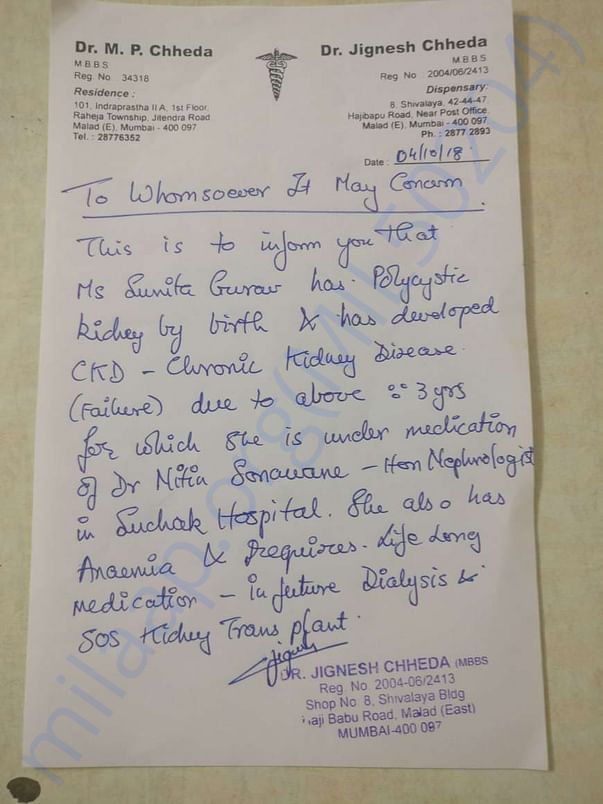 Dr. M. P. Chheda
MBBS
Reg. No. 34318
Residence :
101, Indraprastha II A, 1st Floor,
Raheja Township, Jitendra Road
Malad (E), Mumbai - 400 097
Tel. : 28776352
Dr. Jignesh Chheda
MBBS
Reg No : 2004/06/2413
Dispensary:
8, Shivalaya, 42-44-47,
Hajibapu Road, Near Post Office,
Malad (E), Mumbai - 400 097.
Ph. : 2877 2893
Date : 04/10/18
To Whomsoever It May Concern
This is to inform you That
Ms Sunita Gurav has Polycystic
kidney by birth & has developed
CKD - Chronic Kidney Disease
(Failure) due to above 3 yrs
for which she is under medication
of Dr Nitin Sonawane - Hon Nephrologist
in Suchak Hospital. She also has
Anaemia & requires Life Long
medication - in future Dialysis &
SOS Kidney Transplant.
DR. JIGNESH CHHEDA (MBBS
Reg. No. 2004-06/2413
Shop No 8, Shivalaya Bldg
Haji Babu Road, Malad (East)
MUMBAI-400 097